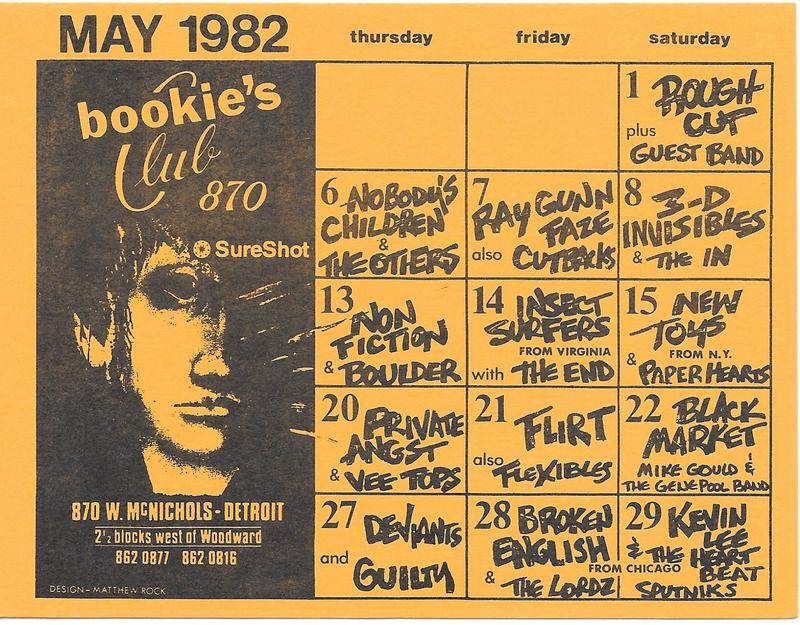 MAY 1982
thursday
friday
saturday
bookie's
Club
870
SureShot
870 W. McNICHOLS - DETROIT
2 1/2 blocks west of Woodward
862 0877 862 0816
DESIGN - MATTHEW ROCK
1 ROUGH
CUT
plus
GUEST BAND
6 NOBODY'S
CHILDREN
&
THE OTHERS
7 RAY GUNN
FAZE
also CUTBACKS
8 3-D
INVISIBLES
& THE IN
13 NON
FICTION
& BOULDER
14 INSECT
SURFERS
FROM VIRGINIA
with THE END
15 NEW
TOYS
FROM N.Y.
& PAPER HEARTS
20 PRIVATE
ANGST
& VEE TOPS
21 FLIRT
also
FLEXIBLES
22 BLACK
MARKET
MIKE GOULD &
THE GENE POOL BAND
27 DEVIANTS
and
GUILTY
28 BROKEN
ENGLISH
FROM CHICAGO
& THE LORDZ
29 KEVIN
LEE
& THE HEART
BEAT
SPUTNIKS